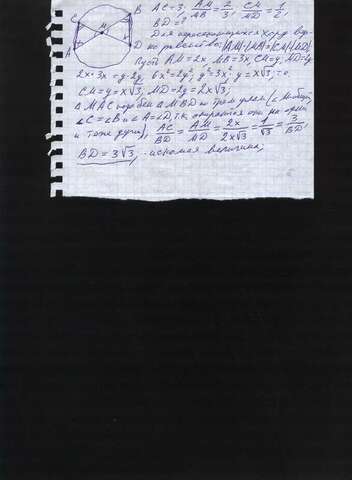 B AC=3, AM/MB = 2/3, CM/MD = 1/2,
C M BD=?
Для пересекающихся хорд вер-
A D но равенство: |AM|·|MB|=|CM|·|MD|
Пусть AM=2x, MB=3x, CM=y, MD=2y
2x·3x=y·2y, 6x²=2y², y²=3x², y=x√3, т.е.
CM=y=x√3, MD=2y=2x√3,
△MAC подобен △MBD по трем углам (∠M общ,
∠C=∠B и ∠A=∠D, т.к. опираются они на одни
и те же дуги), AC/BD = AM/MD = 2x/2x√3 = 1/√3 = 3/BD,
BD=3√3, - искомая величина,